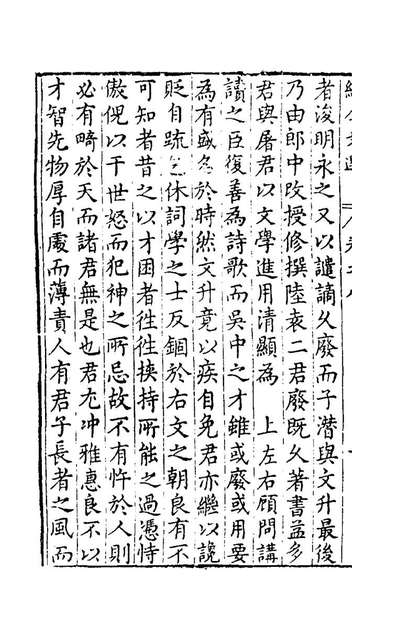 者浚明永之又以譴謫久廢而子潛與文升最後
乃由郎中改授修撰陸袁二君廢既久著書益多
君與屠君以文學進用清顯為　上左右顧問講
讀之臣復善為詩歌而吳中之才雖或廢或用要
為有盛名於時然文升竟以疾自免君亦繼以讒
貶自疏之休詞學之士反錮於右文之朝良有不
可知者昔之以才困者徃徃挾持所能之過憑恃
傲倪以干世怒而犯神之所忌故不有忤於人則
必有畸於天而諸君無是也君尤冲雅惠良不以
才智先物厚自處而薄責人有君子長者之風而